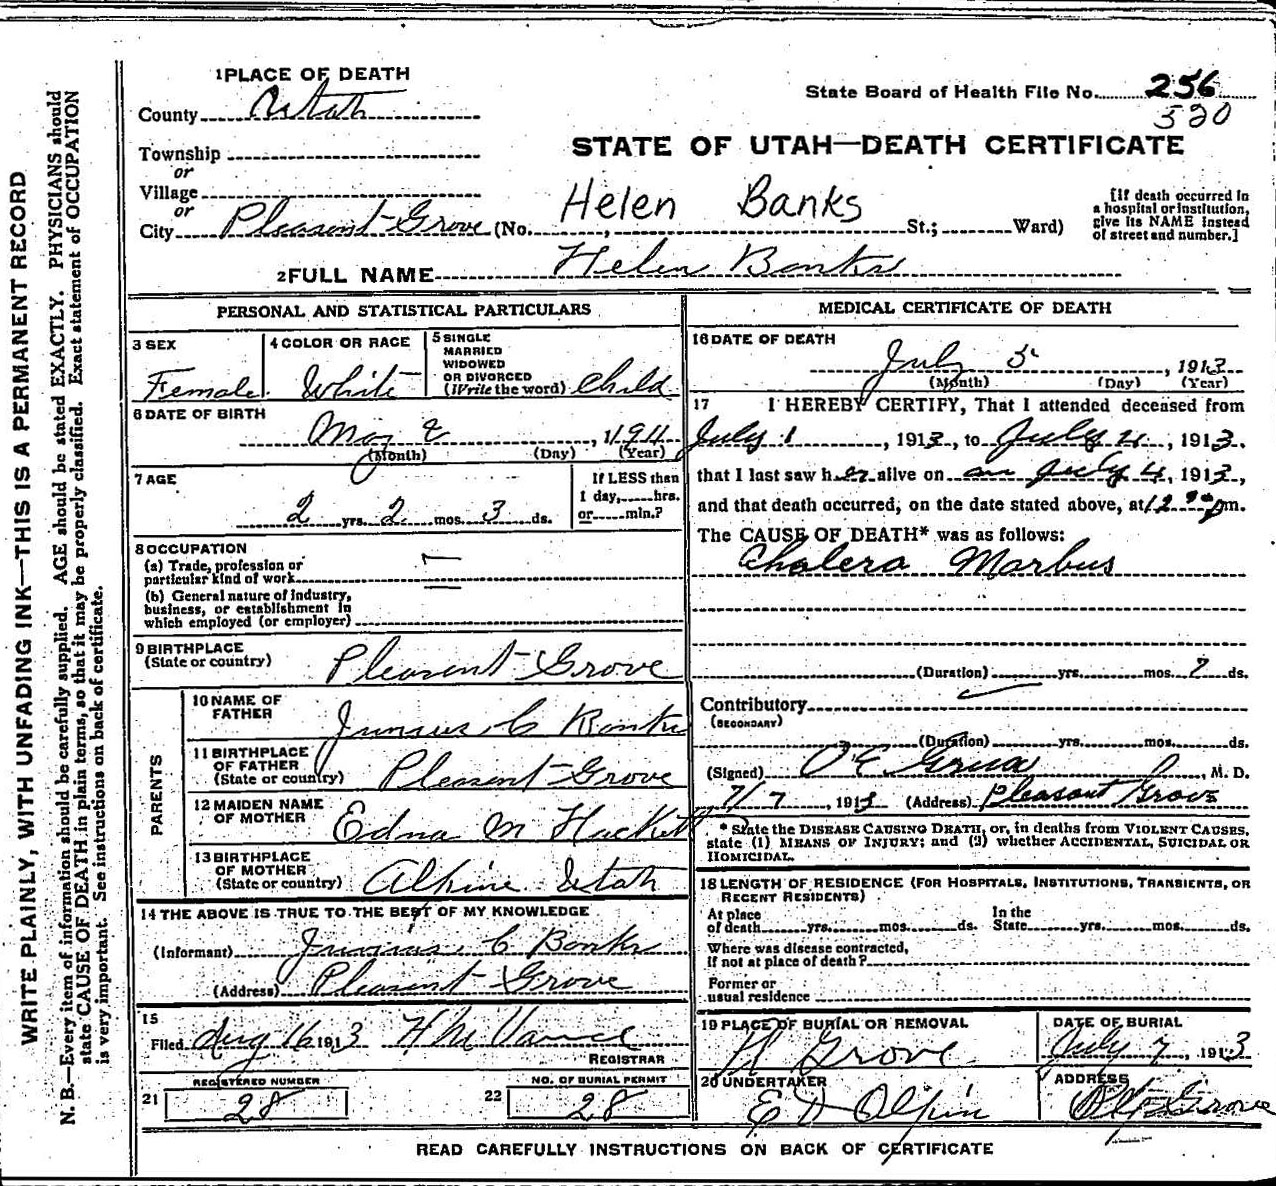 WRITE PLAINLY, WITH UNFADING INK—THIS IS A PERMANENT RECORD
N. B.—Every item of information should be carefully supplied. AGE should be stated EXACTLY. PHYSICIANS should
state CAUSE OF DEATH in plain terms, so that it may be properly classified. Exact statement of OCCUPATION
is very important. See instructions on back of certificate.
1 PLACE OF DEATH
County Utah
State Board of Health File No. 256
520
Township
or
Village
or
City Pleasant Grove (No. , St.; Ward)
STATE OF UTAH—DEATH CERTIFICATE
Helen Banks
[If death occurred in
a hospital or institution,
give its NAME instead
of street and number.]
2 FULL NAME Helen Banks
PERSONAL AND STATISTICAL PARTICULARS
3 SEX
Female
4 COLOR OR RACE
White
5 SINGLE
MARRIED
WIDOWED
OR DIVORCED
(Write the word) Child
6 DATE OF BIRTH
May 2, 1911
(Month) (Day) (Year)
7 AGE
2 yrs. 2 mos. 3 ds.
If LESS than
1 day, hrs.
or min.?
8 OCCUPATION
(a) Trade, profession or
particular kind of work
(b) General nature of industry,
business, or establishment in
which employed (or employer)
9 BIRTHPLACE
(State or country) Pleasant Grove
PARENTS
10 NAME OF
FATHER Junius C Banks
11 BIRTHPLACE
OF FATHER
(State or country) Pleasant Grove
12 MAIDEN NAME
OF MOTHER Edna M Hackett
13 BIRTHPLACE
OF MOTHER
(State or country) Alpine Utah
14 THE ABOVE IS TRUE TO THE BEST OF MY KNOWLEDGE
(Informant) Junius C Banks
(Address) Pleasant Grove
15
Filed Aug 16 1913 H M Vance
REGISTRAR
REGISTERED NUMBER
21 28
NO. OF BURIAL PERMIT
22 28
MEDICAL CERTIFICATE OF DEATH
16 DATE OF DEATH
July 5, 1913
(Month) (Day) (Year)
17 I HEREBY CERTIFY, That I attended deceased from
July 1, 1913, to July 4, 1913.
that I last saw her alive on on July 4, 1913,
and that death occurred, on the date stated above, at 12 pm.
The CAUSE OF DEATH* was as follows:
Cholera Morbus
(Duration) yrs. mos. 7 ds.
Contributory
(SECONDARY)
(Duration) yrs. mos. ds.
(Signed) O E Grua, M. D.
7/7, 1913 (Address) Pleasant Grove
* State the DISEASE CAUSING DEATH, or, in deaths from VIOLENT CAUSES,
state (1) MEANS OF INJURY; and (2) whether ACCIDENTAL, SUICIDAL OR
HOMICIDAL.
18 LENGTH OF RESIDENCE (FOR HOSPITALS, INSTITUTIONS, TRANSIENTS, OR
RECENT RESIDENTS)
At place
of death yrs. mos. ds.
In the
State yrs. mos. ds.
Where was disease contracted,
if not at place of death?
Former or
usual residence
19 PLACE OF BURIAL OR REMOVAL
Grove
DATE OF BURIAL
July 7, 1913
20 UNDERTAKER
E D Olpin
ADDRESS
Grove
READ CAREFULLY INSTRUCTIONS ON BACK OF CERTIFICATE